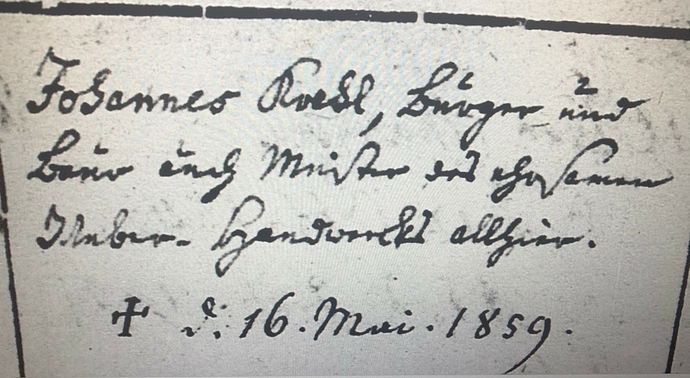 Johannes Krehl, Bürger und
Baur auch Meister des ehrsamen
Weber-Handwercks allhier.
† d. 16. Mai. 1859.